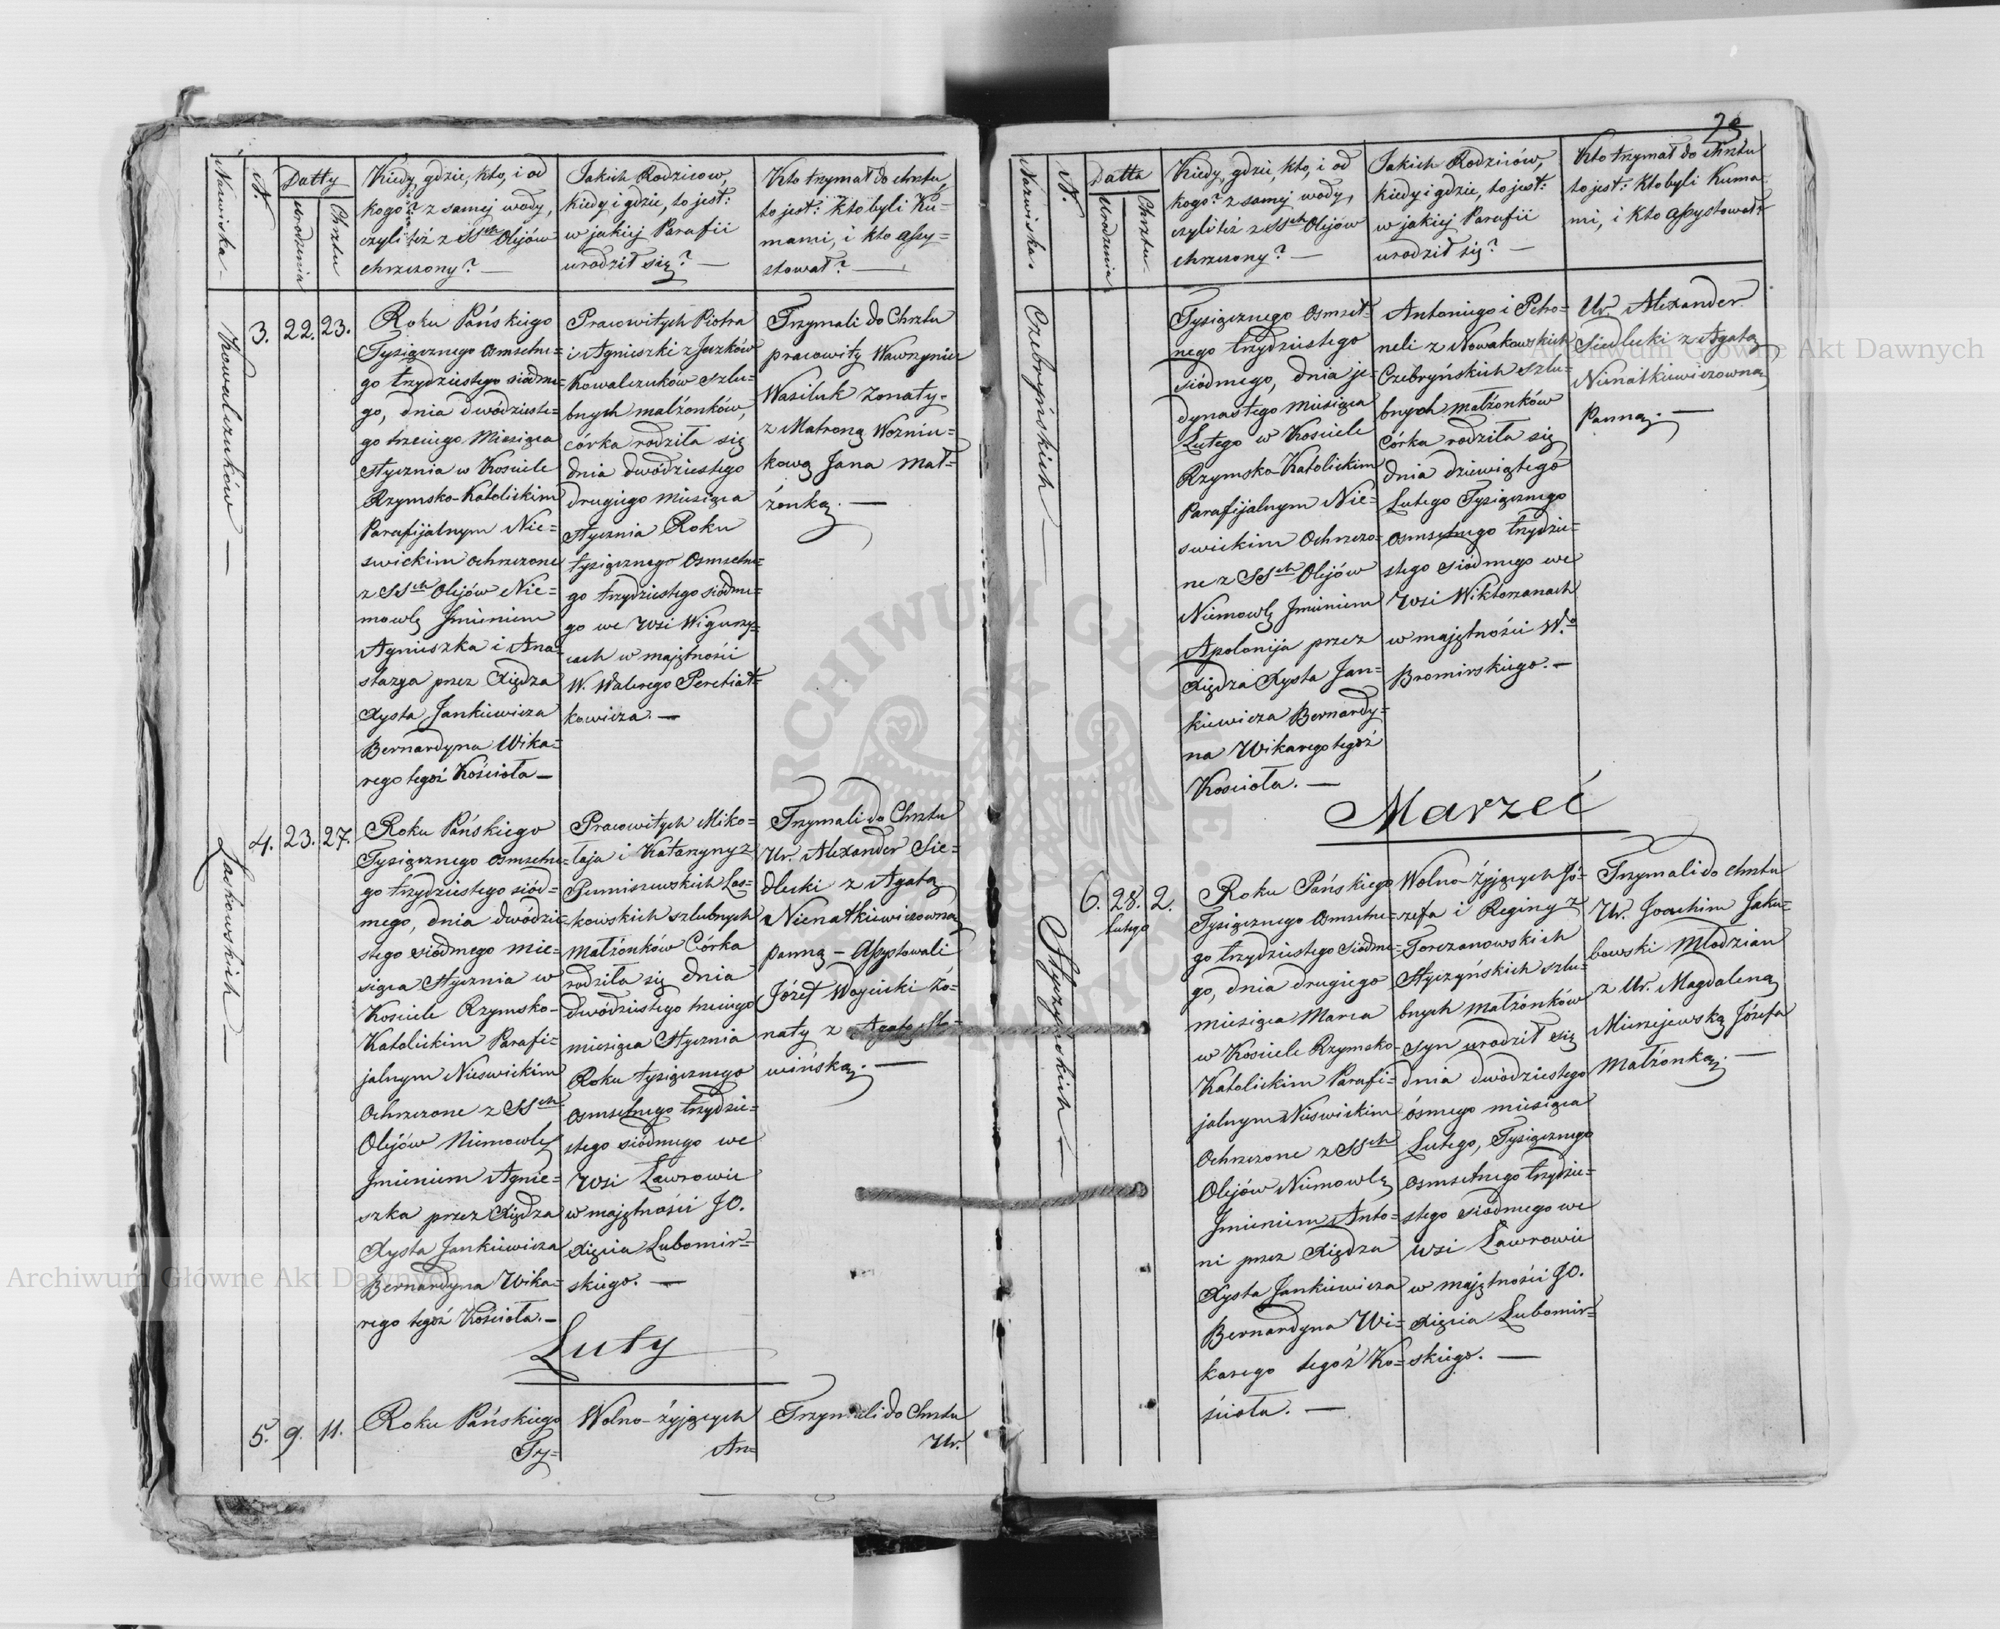 Nazwiska.
N.
Datty
Urodzenia
Chrztu
Kiedy, gdzie, kto, i od
kogo? z samej wody,
czyli też z SSch Olejów
chrzczony? —
Jakich Rodziców,
kiedy i gdzie, to jest:
w jakiej Parafii
urodził się? —
Kto trzymał do chrztu,
to jest: kto byli Ku=
mami, i kto assy=
stował? —
Kowalczuków —
3. 22. 23.
Roku Pańskiego
Tysiącznego Osmsetne=
go trzydziestego siódme=
go, dnia dwódzieste=
go trzeciego Miesiąca
Stycznia w Kosciele
Rzymsko-Katolickim
Parafijalnym Nie=
swickim ochrzczone
z SSch Olejów Nie=
mowlę Jmieniem
Agnieszka i Ana=
stazya przez Xiędza
Xysta Jankiewicza
Bernardyna Wika=
rego tegoż Kościoła —
Pracowitych Piotra
i Agnieszki z Jaczków
Kowalczuków szlu=
bnych małżonków,
córka rodziła się
dnia dwódziestego
drugiego miesiąca
Stycznia Roku
tysiącznego Osmsetne=
go trzydziestego siódme=
go we Wsi Wigurzy=
cach w majętności
W. Walerego Peretiat=
kowicza. —
Trzymali do Chrztu
pracowity Wawrzyniec
Wasiluk żonaty.
z Matroną Wozniu=
kową Jana Mał=
żonką. —
Laskowskich —
4. 23. 27.
Roku Pańskiego
Tysiącznego Osmsetne=
go trzydziestego siód=
mego, dnia dwódzie=
stego siódmego mie=
siąca Stycznia w
Kosciele Rzymsko-
Katolickim Parafi=
jalnym Nieswickim
Ochrzczone z SSch
Olejów Niemowlę
Jmieniem Agnie=
szka przez Xiędza
Xysta Jankiewicza
Bernardyna Wika=
rego tegoż Kościoła. —
Pracowitych Miko=
łaja i Katarzyny z
Las=
kowskich szlubnych
małżonków Córka
rodziła się dnia
dwódziestego trzeciego
miesiąca Stycznia
Roku tysiącznego
osmsetnego trzydzie=
stego siódmego we
Wsi Ławrowie
w majętności JO.
Xięcia Lubomir=
skiego. —
Trzymali do Chrztu
Ur. Alexander Sie=
dlecki z Agatą
Nienatkiewiczowną
panną — Assystowali
Józef Woycicki żo=
naty z Agatą Sła=
wińską. —
Luty
5. 9. 11.
Roku Pańskiego
Ty=
Wolno-żyjących
An=
Trzymali do Chrztu
Ur.
73
Nazwiska.
N.
Datta
Urodzenia
Chrztu.
Kiedy, gdzie, kto, i od
kogo? z samej wody,
czyli też z SSch Olejów
chrzczony? —
Jakich Rodziców,
kiedy i gdzie, to jest:
w jakiej Parafii
urodził się? —
Kto trzymał do chrztu
to jest: kto byli Kuma=
mi, i kto assystował?
Czebryńskich —
Tysiącznego Osmset=
nego trzydziestego
siódmego, dnia je=
dynastego Miesiąca
Lutego w Kosciele
Rzymsko-Katolickim
Parafijalnym Nie=
swickim Ochrzczo=
ne z SSch Olejów
Niemowlę Jmieniem
Apolonija przez
Xiędza Xysta Jan=
kiewicza Bernardy=
na Wikarego tegoż
Kościoła. —
Antoniego i Petro=
neli z Nowakowskich
Czebryńskich szlu=
bnych małżonków
Córka rodziła się
dnia dziewiątego
Lutego Tysiącznego
osmsetnego trzydzie=
stego siódmego we
Wsi Wiktorzanach
w majętności Wo
Bromirskiego. —
Ur. Alexander
Siedlecki z Agatą
Nienatkiewiczowną
Panną. —
Marzec
Styczyńskich —
6. 28. 2.
Lutego
Roku Pańskiego
Tysiącznego Osmsetne=
go trzydziestego siódme=
go, dnia drugiego
miesiąca Marca
w Kosciele Rzymsko-
Katolickim Parafi=
jalnym Nieswickim
Ochrzczone z SSch
Olejów Niemowlę
Jmieniem Anto=
ni przez Xiędza
Xysta Jankiewicza
Bernardyna Wi=
karego tegoż Ko=
ścioła. —
Wolno-żyjących Jó=
zefa i Reginy z
Torczanowskich
Styczyńskich szlu=
bnych małżonków
syn urodził się
dnia dwódziestego
ósmego miesiąca
Lutego, Tysiącznego
osmsetnego trzydzie=
stego siódmego we
wsi Ławrowie
w majętności JO.
Xięcia Lubomir=
skiego. —
Trzymali do chrztu
Ur. Joachim Jaku=
bowski Młodzian
z Ur. Magdaleną
Mierzejewską Józefa
Małżonką. —
Archiwum Główne Akt Dawnych
Archiwum Główne Akt Dawnych